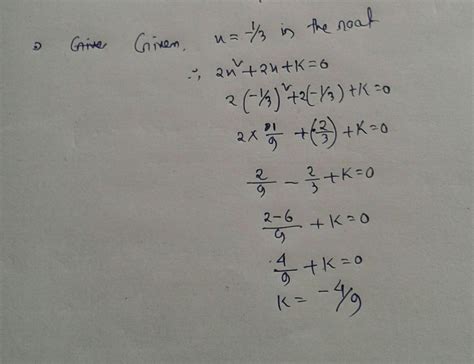 Given. x = -1/3 is the root
∴, 2x² + 2x + K = 0
2(-1/3)² + 2(-1/3) + K = 0
2 × 1/9 + (-2/3) + K = 0
2/9 - 2/3 + K = 0
2-6/9 + K = 0
4/9 + K = 0
K = -4/9